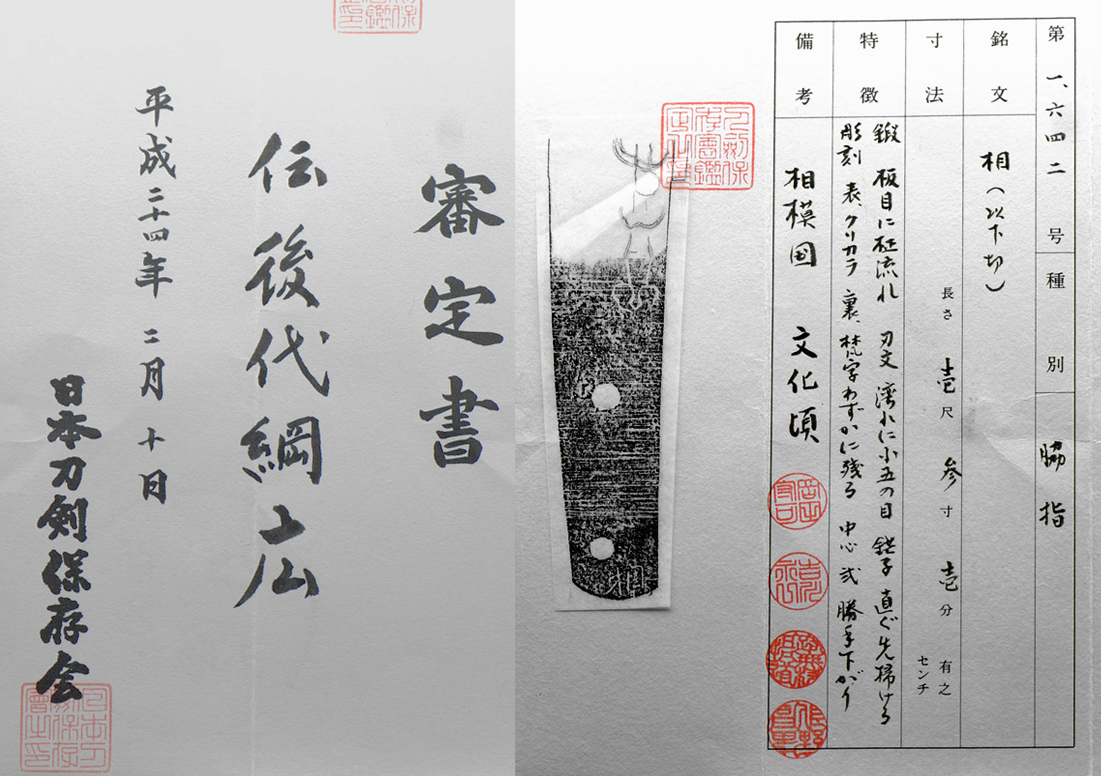 第一、六四二号
種別
脇指
銘文
相（以下切）
寸法
長さ 壱尺 参寸 壱分 有之
センチ
特徴
鍛 板目に柾流れ 刃文 湾れに小五の目 鋩子 直ぐ先掃ける
彫刻 表、クリカラ 裏、梵字わずかに残る 中心 弐 勝手下がり
備考
相模国 文化頃
相
審定書
伝 後代綱広
平成二十四年 二月 十日
日本刀剣保存会